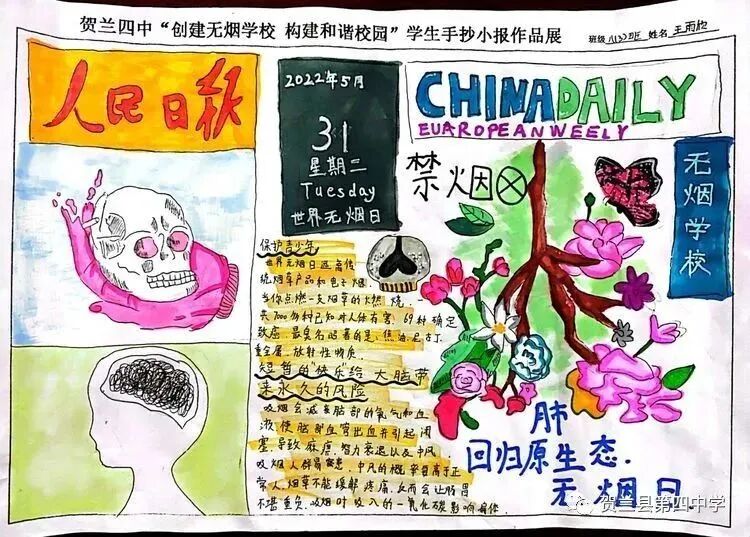 贺兰四中“创建无烟学校 构建和谐校园”学生手抄小报作品展
班级 八(3)班 姓名 王雨欣
人民日报
2022年5月
31
星期二
Tuesday
世界无烟日
CHINADAILY
EUAROPEANWEELY
禁烟
无烟学校
保护青少年
世界无烟日远离传
统烟草产品和电子烟
当你点燃一支烟草的燃烧
共7000多种已知对人体有害，69种确定
致癌，最臭名昭著的是：焦油，尼古丁
重金属，放射性物质.
短暂的“快乐”给大脑带
来永久的风险
吸烟会减来脑部的氧气和血
液，使脑部血管出血并引起闭
塞，导致麻痹，智力衰退以及中风.
吸烟人群易患，中风的概率要高于正
常人，烟草不能缓解疼痛，反而会让肠胃
不堪重负，吸烟时吸入的一氧化碳影响
肺
回归原生态.
无烟日
贺兰县第四中学